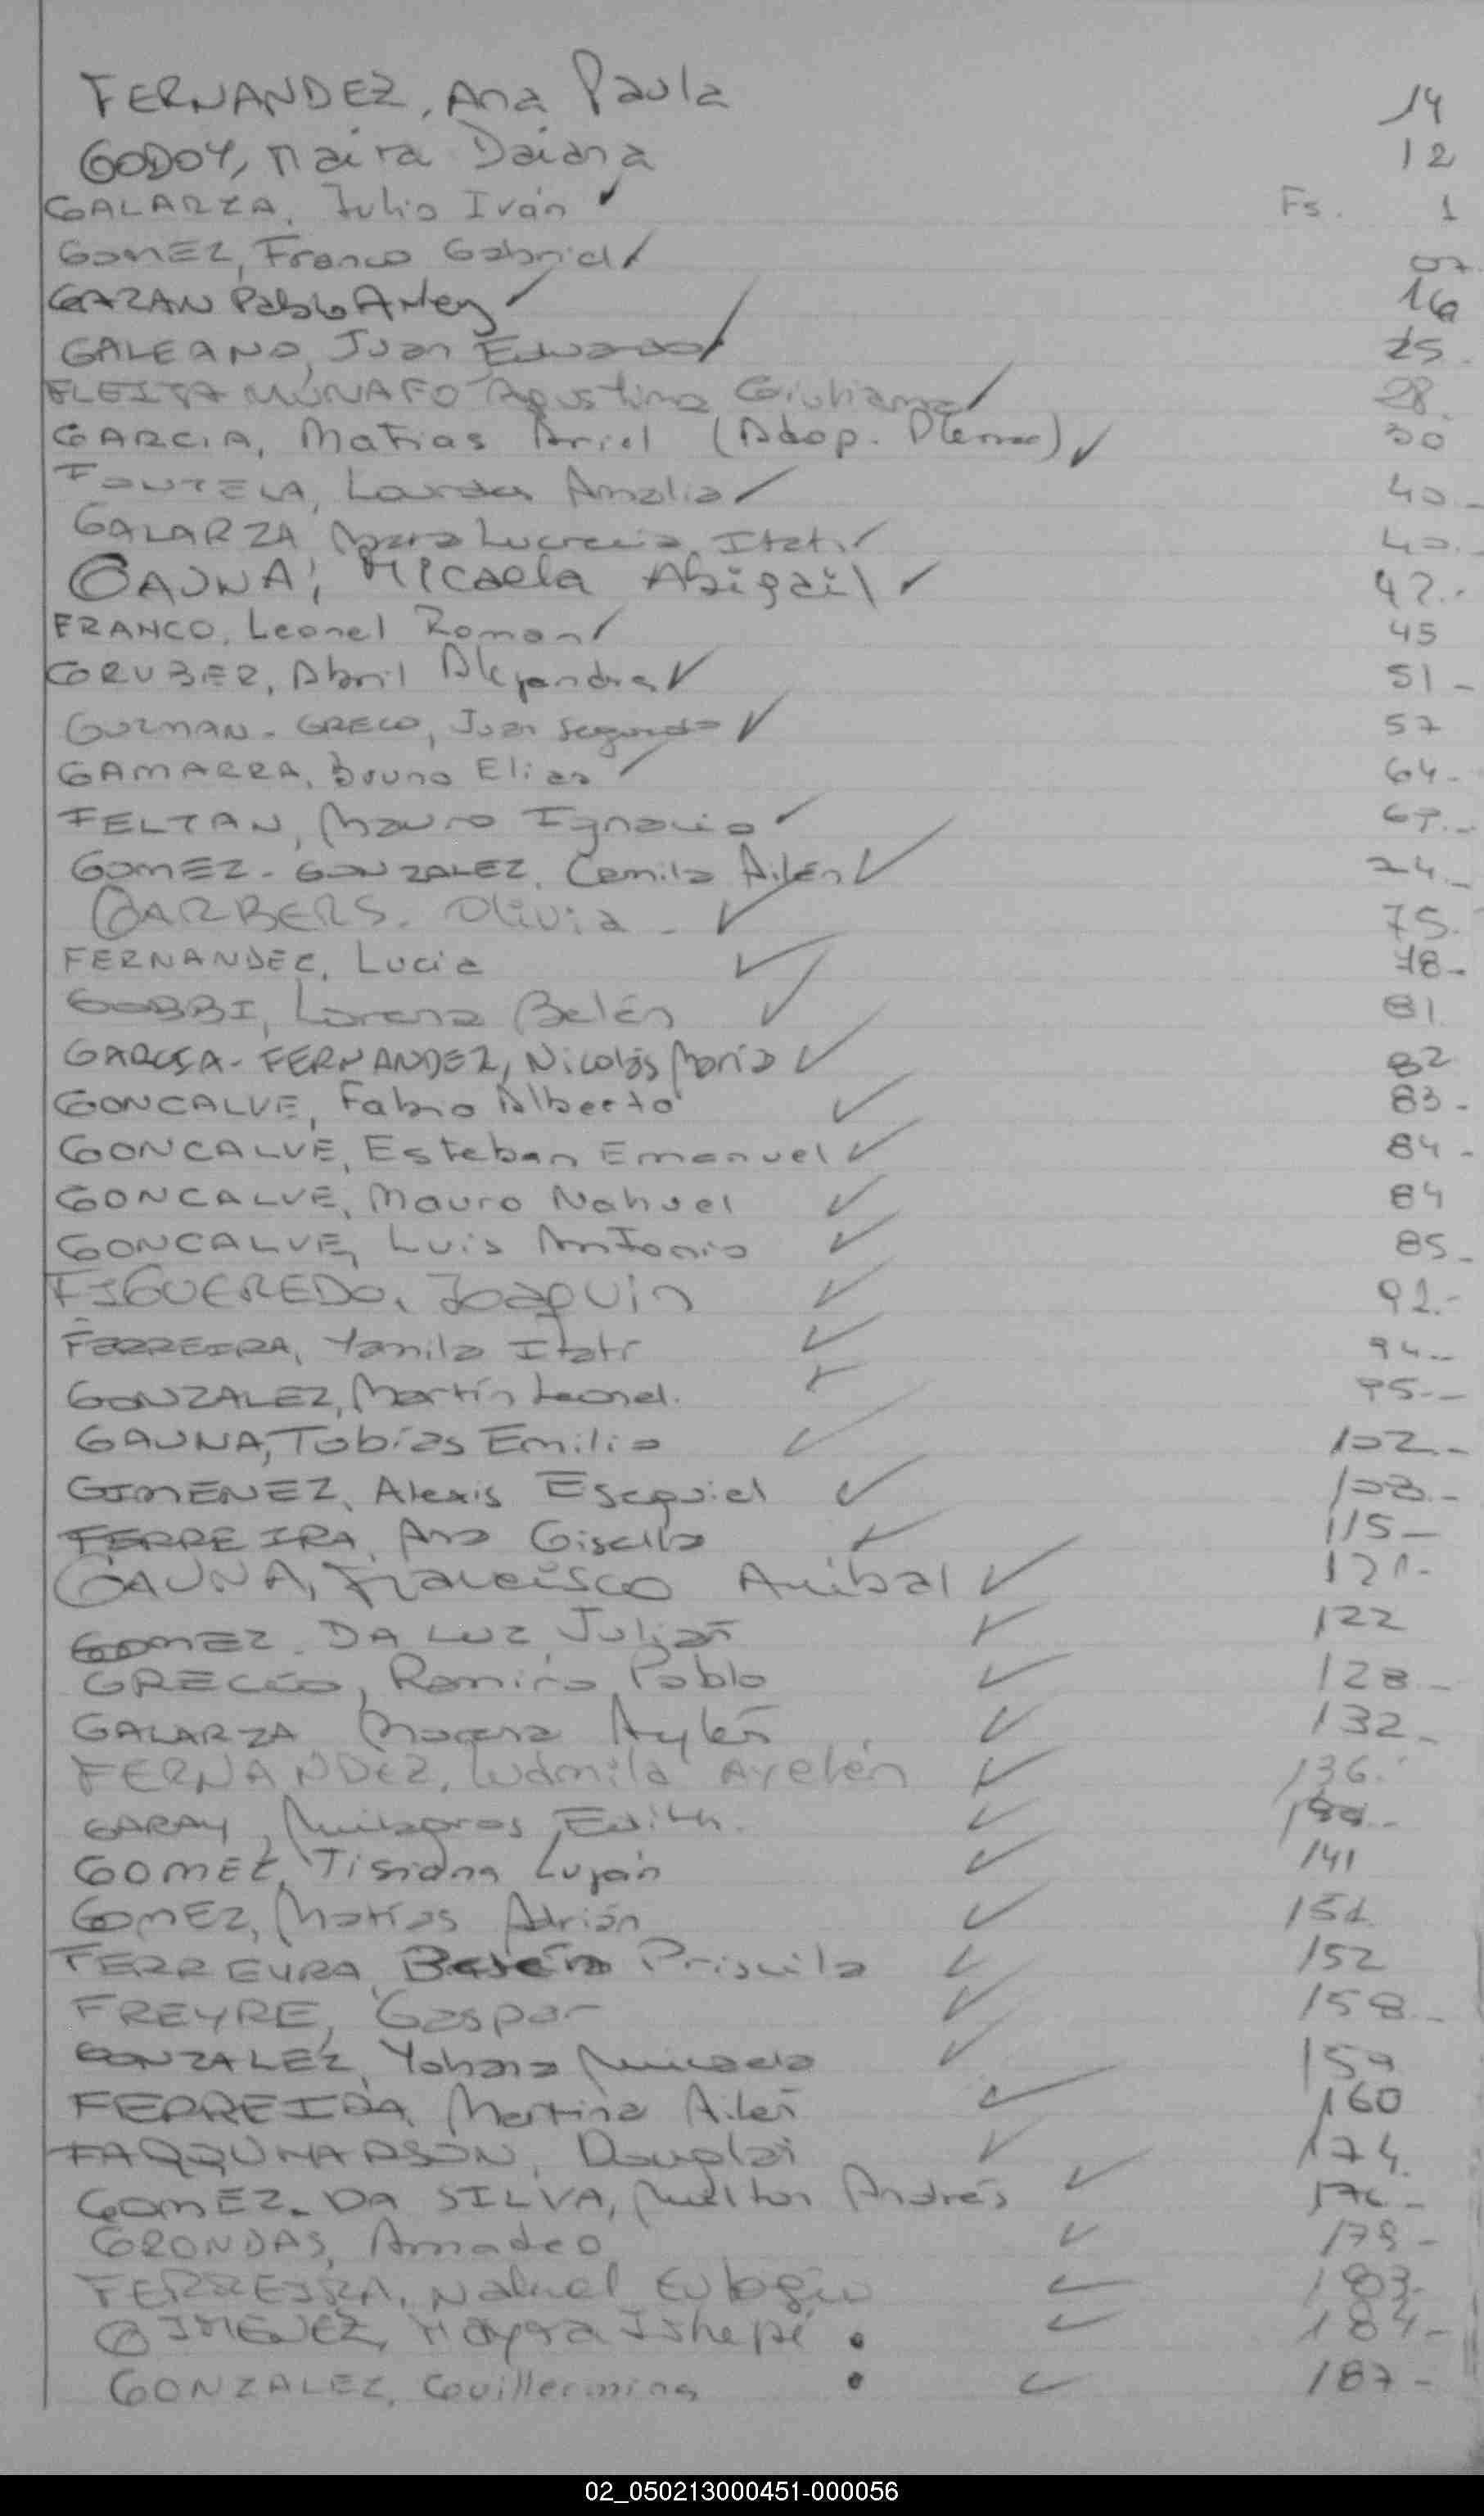 FERNANDEZ, Ana Paula 14
GODOY, Maira Daiana 12
GALARZA, Julio Iván ✓ Fs. 1
GOMEZ, Franco Gabriel ✓ 07
GAZAN Pablo ✓ 16
GALEANO, Juan Eduardo ✓ 25.
FLEITA MUNAFO Agustina Giuliana ✓ 28.
GARCIA, Matias Ariel (Adop. Plena) ✓ 30
FONTELA, Lourdes Amalia ✓ 40_
GALARZA Mara Lucrecia Itatí ✓ 40.
GAUNA, Micaela Abigail ✓ 42.-
FRANCO, Leonel Roman ✓ 45
GRUBER, Abril Alejandra ✓ 51-
GUZMAN-GRECO, Juan Segundo ✓ 57
GAMARRA, Bruno Elias ✓ 64-
FELTAN, Mauro Ignacio ✓ 67.-
GOMEZ-GONZALEZ, Camila Ailén ✓ 74._
GARBERS. Olivia - ✓ 75.
FERNANDEZ, Lucia ✓ 78-
GOBBI, Lorena Belén ✓ 81
GARCIA-FERNANDEZ, Nicolás María ✓ 82
GONCALVE, Fabio Alberto ✓ 83-
GONCALVE, Esteban Emanuel ✓ 84-
GONCALVE, Mauro Nahuel ✓ 84
GONCALVE, Luis Antonio ✓ 85_
FIGUEREDO, Joaquin ✓ 92.-
FERREIRA, Yamila Itatí ✓ 94._
GONZALEZ, Martín Leonel. ✓ 95.-
GAUNA, Tobías Emilio ✓ 102.-
GIMENEZ, Alexis Esequiel ✓ 103.-
FERREIRA, Ana Gisella ✓ 115_
GAUNA, Francisco Anibal ✓ 121-
GOMEZ-DA LUZ, Julián ✓ 122
GRECCO, Ramiro Pablo ✓ 128_
GALARZA Macarena Aylén ✓ 132_
FERNANDEZ, Ludmila Ayelén ✓ 136.
GARAY, Milagros Edith. ✓
GOMEZ, Tisiana Luján ✓ 141
GOMEZ, Matías Adrián ✓ 151
FERREYRA, Belén Priscila ✓ 152
FREYRE, Gaspar ✓ 158_
GONZALEZ, Yohana Micaela ✓ 159
FERREIRA, Martina Ailén ✓ 160
FARQUHARSON, Douglas ✓ 174.
GOMEZ-DA SILVA, Milton Andrés ✓ 176-
GRONDAS, Amadeo ✓ 179-
FERREIRA, Nahuel Eulogio ✓ 183-
GIMENEZ, Mayra ✓ 184-
GONZALEZ, Guillermina ✓ 187-
02_050213000451-000056